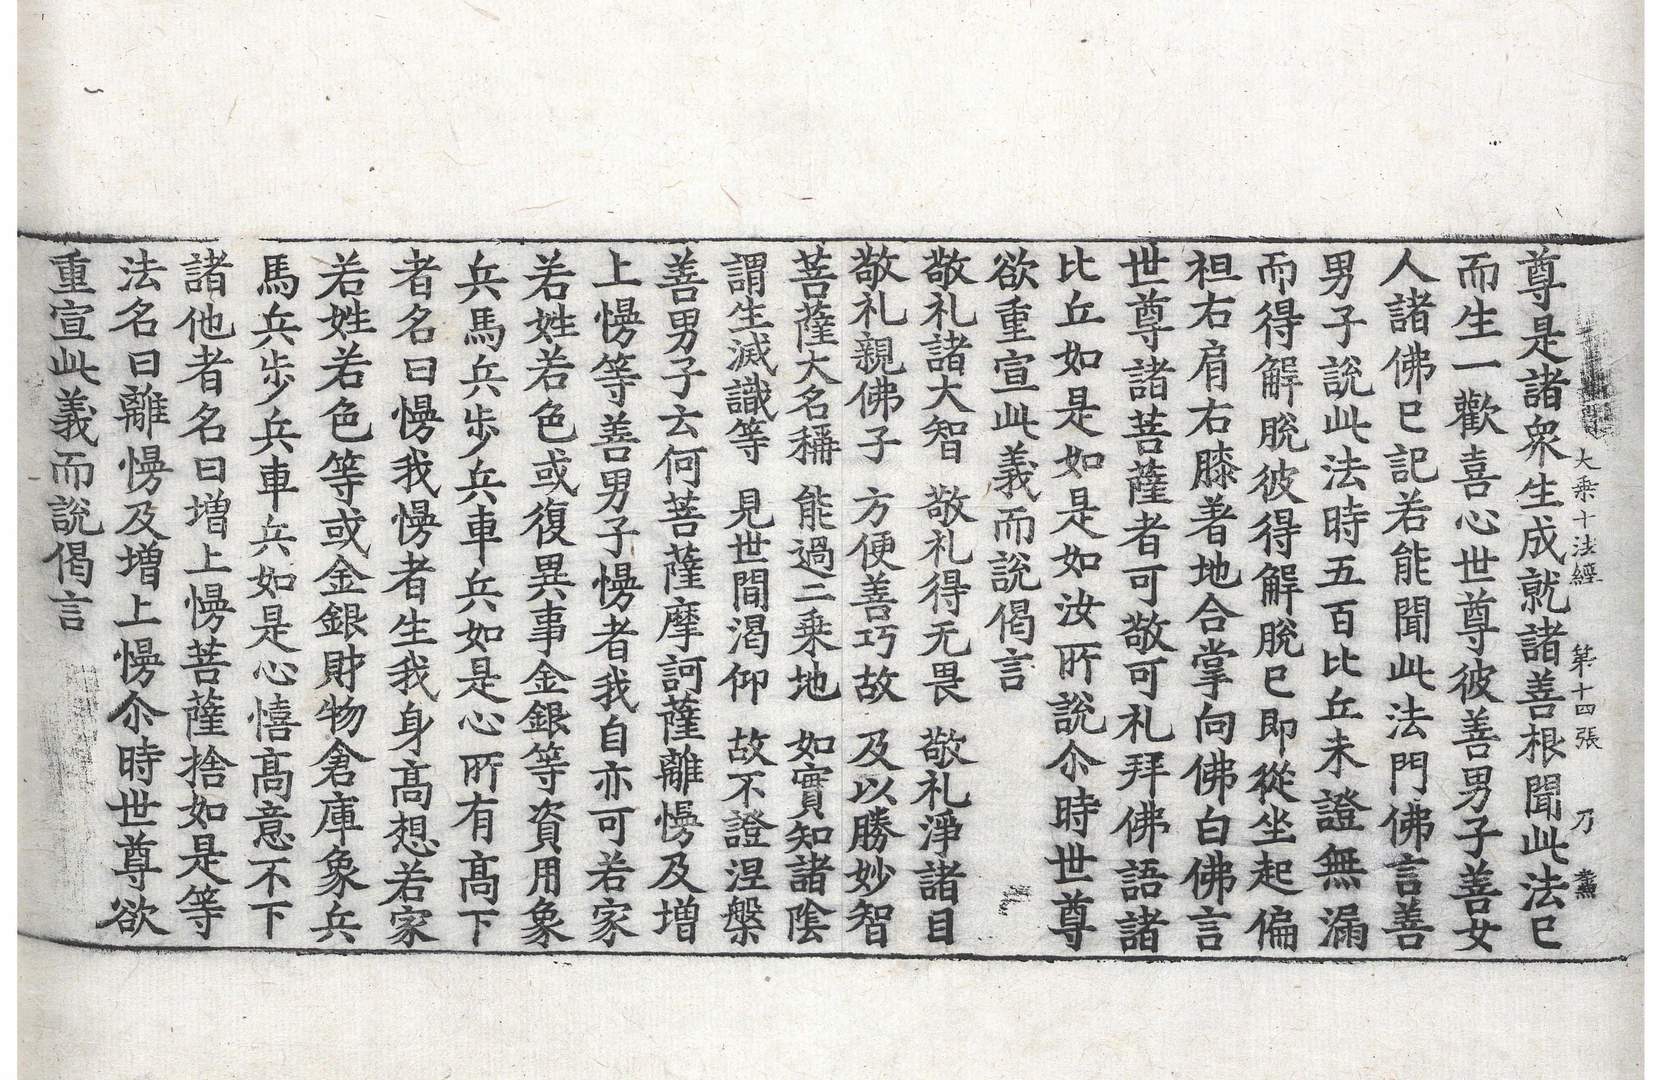 大乗十法經 第十四張 乃
尊是諸衆生成就諸善根聞此法已
而生一歡喜心世尊彼善男子善女
人諸佛已記若能聞此法門佛言善
男子說此法時五百比丘未證無漏
而得解脫彼得解脫已即從坐起偏
袒右肩右膝著地合掌向佛白佛言
世尊諸菩薩者可敬可礼拜佛語諸
比丘如是如是如汝所說尒時世尊
欲重宣此義而說偈言
敬礼諸大智 敬礼得无畏 敬礼淨諸目
敬礼親佛子 方便善巧故 及以勝妙智
菩薩大名稱 能過二乗地 如實知諸陰
謂生滅識等 見世間渴仰 故不證涅槃
善男子云何菩薩摩訶薩離慢及增
上慢等善男子慢者我自亦可若家
若姓若色或復異事金銀等資用象
兵馬兵步兵車兵如是心所有高下
者名曰慢我慢者生我身高想若家
若姓若色等或金銀財物倉庫象兵
馬兵步兵車兵如是心憘高意不下
諸他者名曰增上慢菩薩捨如是等
法名曰離慢及增上慢尒時世尊欲
重宣此義而說偈言